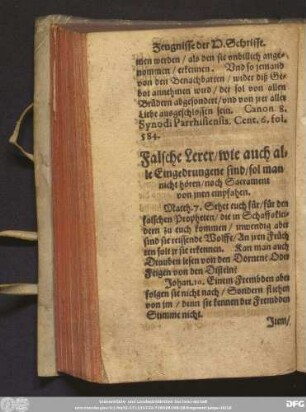 Zeugnisse der D. Schrifft.
men werden / als den sie unbillich ange-
nommen / erkennen. Und so jemand
von den Benachbarten / wider diß Ge-
bot annehmen wird / der sol von allen
Brüdern abgesondert / und von jrer aller
Liebe ausgeschlossen sein. Canon. 8.
Synodi Parrhisiensis. Cent. 6. fol.
584.
Falsche Lerer / wie auch al-
le Eingedrungene sind / sol man
nicht hören / noch Sacrament
von jnen empfahen.
Matth. 7. Sehet euch für / für den
falschen Propheten / die in Schaffsklei-
dern zu euch kommen / inwendig aber
sind sie reissende Wolffe / An jren Früch
ten solt jr sie erkennen. Kan man auch
Drauben lesen von den Dornen? Oder
Feigen von den Disteln?
Johan. 10. Einem Frembden aber
folgen sie nicht nach / Sondern fliehen
von jm / denn sie kennen der Frembden
Stimme nicht.
Item /
DFG